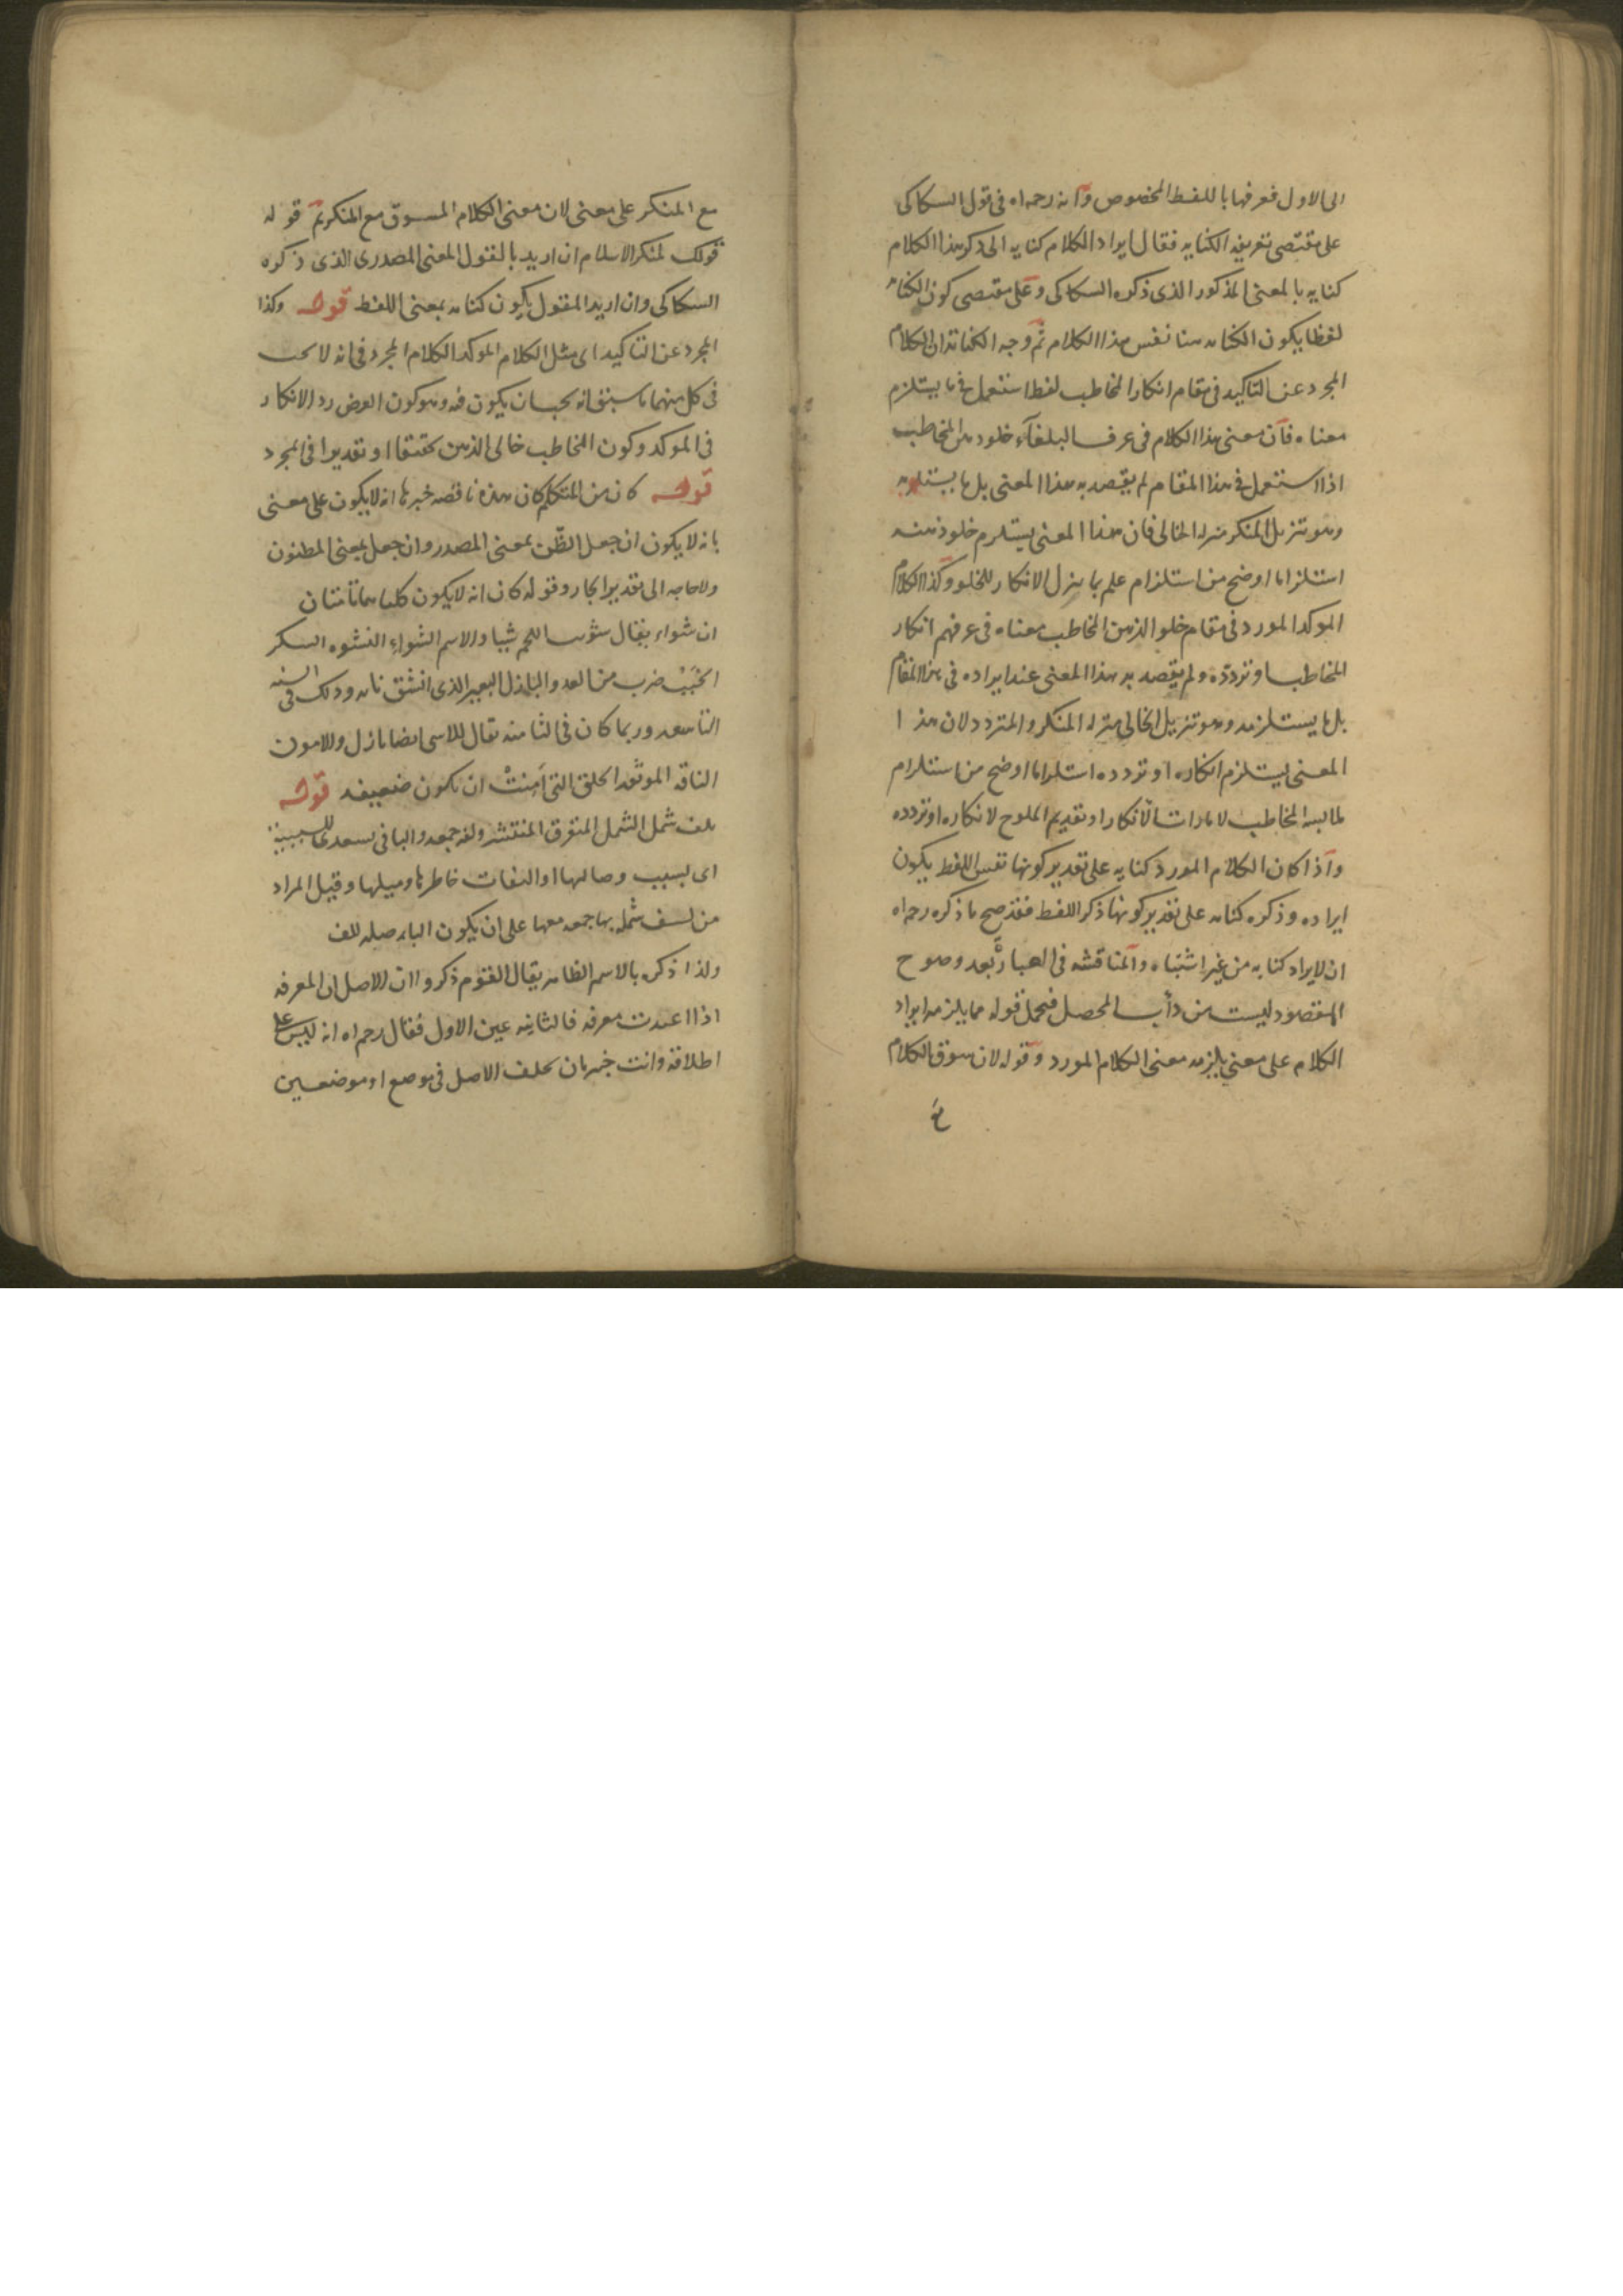 الى الاول فعرفها باللفظ المخصوص وانه رحمه اه فى قول السكاكى
على مقتضى تعريفه الكنايه فقال ايراد الكلام كنايه الى ذكر هذا الكلام
كنايه بالمعنى المذكور الذى ذكره السكاكى وعلى مقتضى كون الكنايه
لفظا يكون الكنايه هنا نفس هذا الكلام ثم وجه الكناية ان الكلام
المجرد عن التاكيد فى مقام انكار المخاطب لفظ استعمل فى ما يستلزم
معناه فان معنى هذا الكلام فى عرف البلغآء خلو ذهن المخاطب
اذا استعمل فى هذا المقام لم يقصد به هذا المعنى بل ما يستلزمه
وهو تنزيل المنكر منزله الخالى فان هذا المعنى يستلزم خلو ذهنه
استلزاما اوضح من استلزام علم بما ينزل الانكار للخلو وكذا الكلام
الموكد المورد فى مقام خلو الذهن المخاطب معناه فى عرفهم انكار
المخاطب او تردده ولم يقصد به هذا المعنى عند ايراده فى هذا المقام
بل ما يستلزمه وهو تنزيل الخالى منزله المنكر والمتردد لان هذا
المعنى يستلزم انكاره او تردده استلزاما اوضح من استلزام
ملابسه المخاطب لامارات الانكار او تقديم الملوح لانكاره او تردده
واذا كان الكلام المورد كنايه على تقدير كونها نفس اللفظ يكون
ايراده وذكره كنايه على تقدير كونها ذكر اللفظ فقد صح ما ذكره رحمه اه
ان الايراد كنايه من غير اشتباه والمناقشه فى العبارة بعد وضوح
المقصود ليست من دأب المحصل فيحمل قوله مما يلزمه ايراد
الكلام على معنى يلزمه معنى الكلام المورد وقوله لان سوق الكلام
مع
مع المنكر على معنى لان معنى الكلام المسوق مع المنكر ثم قوله
قولك لمنكر الاسلام ان اريد بالقول المعنى المصدرى الذى ذكره
السكاكى وان اريد المقول يكون كنايه بمعنى اللفظ قوله وكذا
المجرد عن التاكيد اى مثل الكلام الموكد الكلام المجرد فى انه لا يجب
فى كل منهما ما سبق انه يجب ان يكون فيه وهو كون الغرض رد الانكار
فى الموكد وكون المخاطب خالى الذهن تحقيقا او تقديرا فى المجرد
قوله كان من المتكلم كان هذه ناقصه خبرها انه لا يكون على معنى
بانه لا يكون ان جعل الظن بمعنى المصدر وان جعل بمعنى المظنون
ولا حاجه الى تقدير الجار وقوله كان انه لا يكون كلتاهما تامتان
ان شواء يقال شويت اللحم شيا والاسم الشواء النشوه السكر
الخبب ضرب من العدو والبازل البعير الذى انشق نابه وذلك فى السنه
التاسعه وربما كان فى الثامنه يقال للانثى ايضا بازل والامون
الناقه الموثقه الخلق التى اَمِنتْ ان تكون ضعيفه قوله
يلف شمل الشمل المتفرق المنتشر ولفه جمعه والبا فى بسعدى للسببية
اى بسبب وصالها او التفات خاطرها وميلها وقيل المراد
من لف شمله بها جمعه معها على ان يكون البا صله للف
ولذا ذكره بالاسم الظاهر يقال القوم ذكروا ان الاصل ان المعرفه
اذا اعيدت معرفه فالثانيه عين الاول فقال رحمه اه انه ليس على
اطلاقه وانت خبير بان تخلف الاصل فى موضع او موضعين